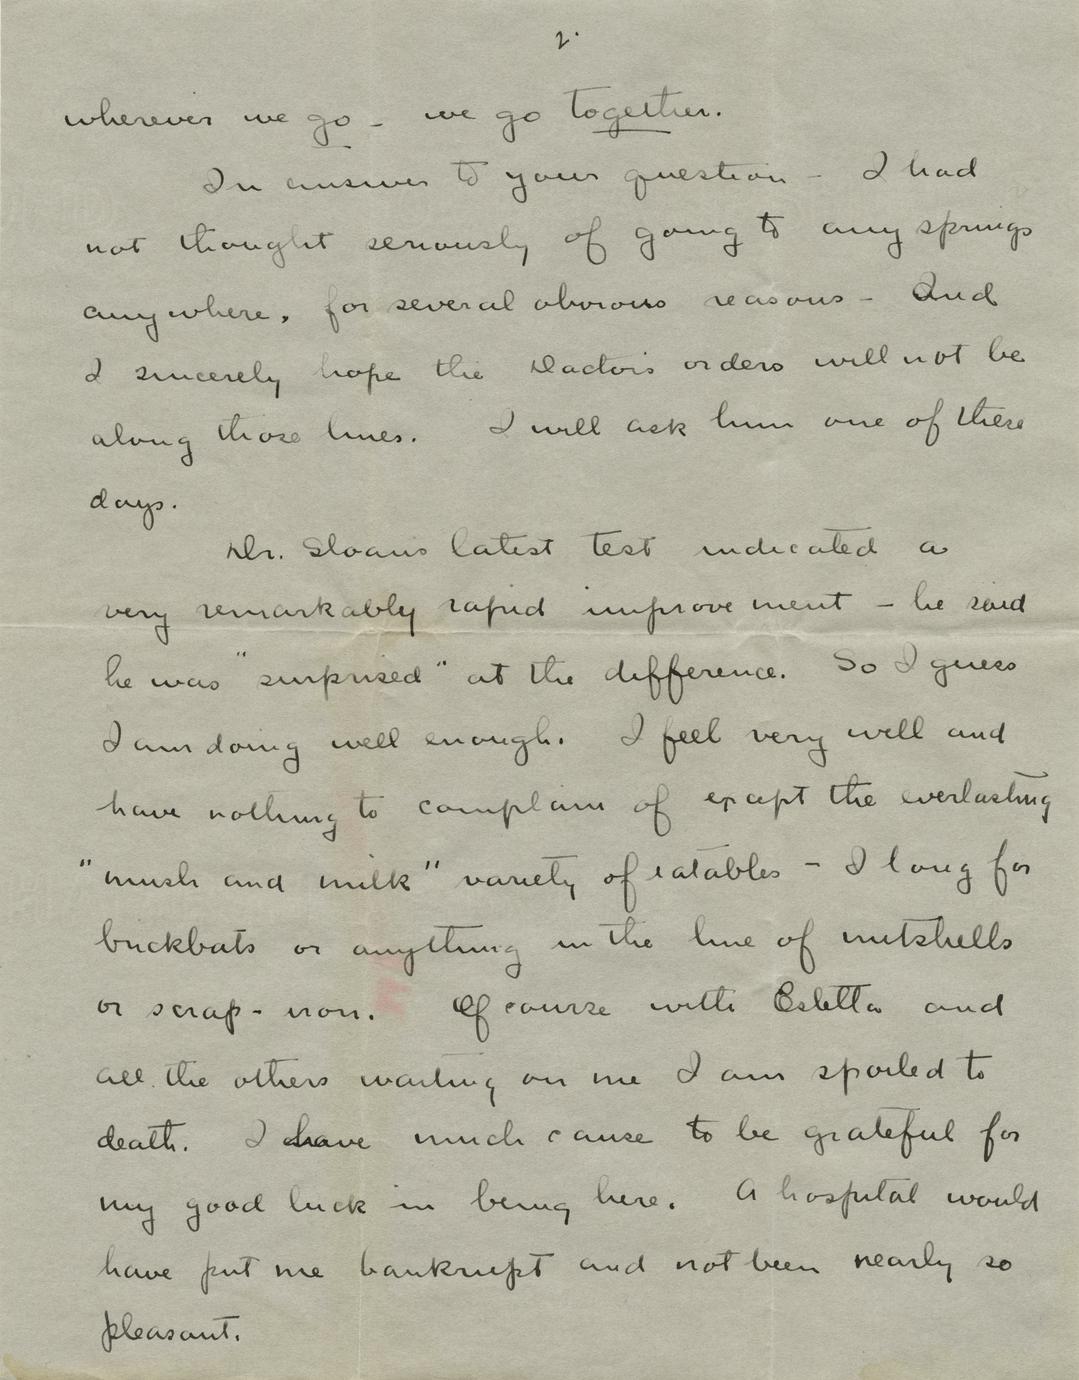 2.
wherever we go - we go together.
In answer to your question - I had
not thought seriously of going to any springs
anywhere, for several obvious reasons - And
I sincerely hope the Doctors orders will not be
along those lines. I will ask him one of these
days.
Dr. Sloans latest test indicated a
very remarkably rapid improvement - he said
he was "surprised" at the difference. So I guess
I am doing well enough. I feel very well and
have nothing to complain of except the everlasting
"mush and milk" variety of eatables - I long for
brickbats or anything in the line of nutshells
or scrap-iron. Of course with Esletta and
all the others waiting on me I am spoiled to
death. I have much cause to be grateful for
my good luck in being here. A hospital would
have put me bankrupt and not been nearly so
pleasant.